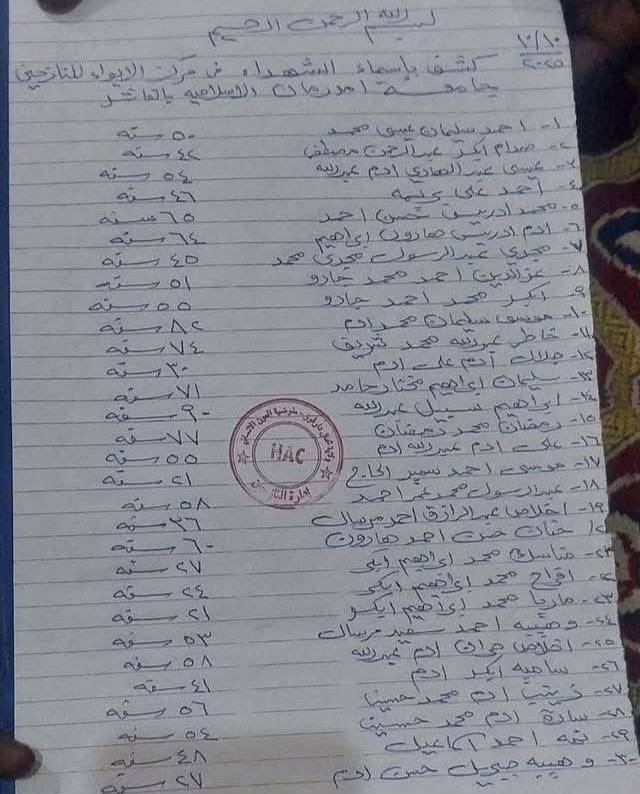 بسم الله الرحمن الرحيم
١٠/١٠
٢٠٢٥
كشف بأسماء الشهداء في مركز الايواء للنازحين
جامعة امدرمان الاسلامية بالفاشر
١- احمد سليمان عيسى محمد ٥٠ سنة
٢- صدام ابكر عبدالرحمن مصطفى ٤٢ سنة
٣- عيسى عبدالهادي ادم عبدالله ٥٤ سنة
٤- احمد علي ٤٦ سنة
٥- محمد ادريس حسن احمد ٦٥ سنة
٦- ادم ادريس هارون ابراهيم ٦٤ سنة
٧- مجدي عبدالرسول مجدي محمد ٤٥ سنة
٨- عزالدين احمد محمد جادو ٥١ سنة
٩- ابكر محمد احمد جادو ٥٥ سنة
١٠- موسى سليمان محمد ادم ٨٢ سنة
١١- خاطر عبدالله محمد شريف ٧٤ سنة
١٢- جلال آدم علي ادم ٣٠ سنة
١٣- سليمان ابراهيم مختار حامد ٧١ سنة
١٤- ابراهيم سبيل عبدالله ٩٠ سنة
١٥- رمضان محمد رمضان ٧٧ سنة
١٦- علي ادم عبدالله ادم ٥٥ سنة
١٧- موسى احمد سمير الحاج ٢١ سنة
١٨- عبدالرسول محمد عمر احمد ٥٨ سنة
١٩- اخلاص عبدالرازق احمد مرسال ٣٦ سنة
٢٠- حنان احمد هارون ٦٠ سنة
محمد ابراهيم ابكر ٢٧ سنة
٢٢- افراح محمد ابراهيم ابكر ٢٤ سنة
٢٣- ماريا محمد ابراهيم ابكر ٢١ سنة
٢٤- وهيبه احمد سعيد مرسال ٥٣ سنة
٢٥- اخلاص ادم عبدالله ٥٨ سنة
٢٦- ساميه ابكر ادم ٤١ سنة
٢٧- زينب ادم محمد حسين ٥٦ سنة
٢٨- سارة ادم محمد حسين ٥٤ سنة
٢٩- احمد اسماعيل ٤٨ سنة
٣٠- وهيبه جبريل حسن ادم ٢٧ سنة
HAC